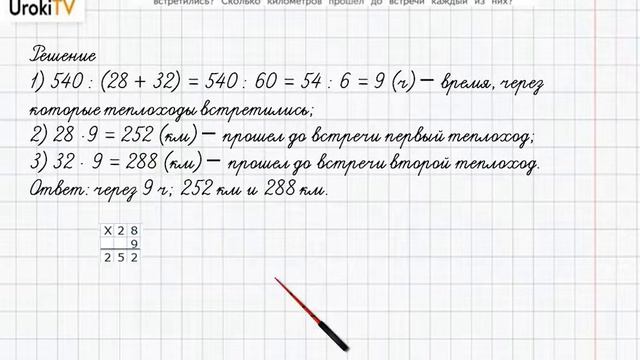 UrokiTV
встретились? Сколько километров прошел до встречи каждый из них?
Решение
1) 540 : (28 + 32) = 540 : 60 = 54 : 6 = 9 (ч) — время, через
которые теплоходы встретились;
2) 28 · 9 = 252 (км) — прошел до встречи первый теплоход;
3) 32 · 9 = 288 (км) — прошел до встречи второй теплоход.
Ответ: через 9 ч; 252 км и 288 км.
X 2 8
9
2 5 2